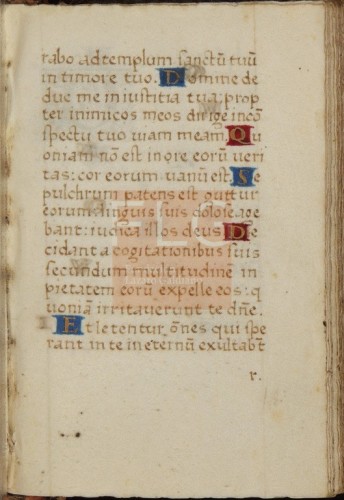 rabo ad templum sanctũ tuũ
in timore tuo. Domine de
duc me in iustitia tua: prop
ter inimicos meos dirige incõ
spectu tuo uiam meam. Qu
oniam nõ est in ore eorũ veri
tas: cor eorum uanũ est. Se
pulchrum patens est guttur
eorum linguis suis dolose age
bant: iudica illos deus. De
cidant a cogitationibus suis
secundum multitudinẽ im
pietatem eorũ expelle eos: q
uoniã irritauerunt te dñe.
Et letentur oñes qui spe
rant in te in eternũ exultabt̃
r.